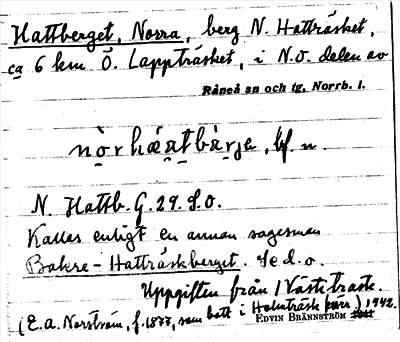 Hattberget, Norra, berg N. Hatträsket,
ca 6 km Ö. Lappträsket, i N.Ö. delen av
Råneå sn och tg, Norrb. l.
nòrhæ̀atbàrjə, bf. n.
N. Hattb. G. 29. S.O.
Kallas enligt en annan sagesman
Bakre-Hatträskberget. Se d.o.
Uppgiften från 1 Västiträsk.
(E.A. Norström, f. 1877, som bott i Holmträsk förr.) 1942.
EDVIN BRÄNNSTRÖM